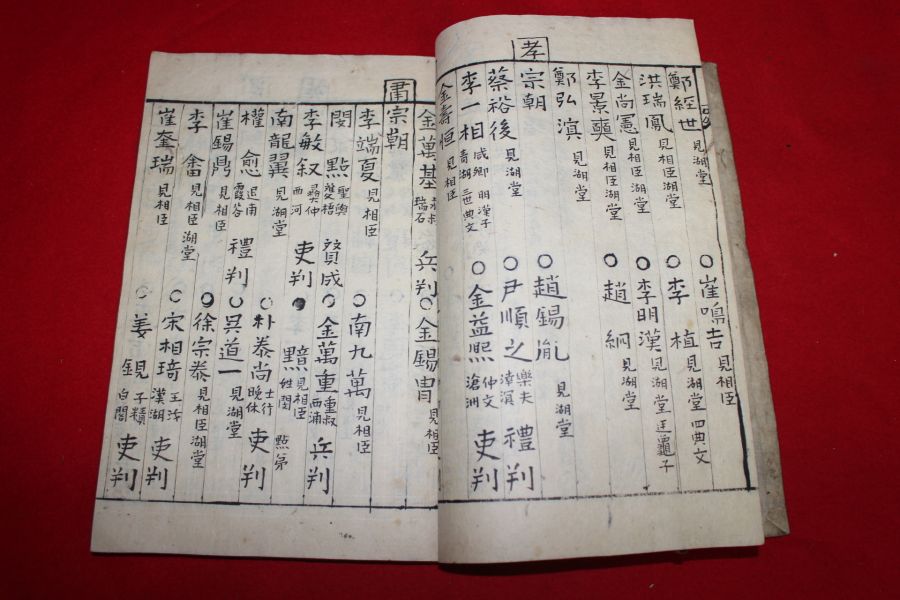 鄭經世 見湖堂 ○崔鳴吉 見相臣
洪瑞鳳 見相臣湖堂 ○李植 見湖堂 四典文
金尚憲 見相臣湖堂 ○李明漢 見湖堂 子
李景奭 見相臣湖堂 ○趙絅 見湖堂
鄭弘溟 見湖堂
孝宗朝 ○趙錫胤 見湖堂
蔡裕後 見湖堂 ○尹順之 樂夫 涬溟 禮判
李一相 咸卿 青湖 明漢子 三世典文 ○金益熙 仲文 滄洲 吏判
金壽恒 見相臣
金萬基 永叔 瑞石 兵判 ○金錫胄 見相臣
肅宗朝
李端夏 見相臣 ○南九萬 見相臣
閔點 聖與 雙梧 贊成 ○金萬重 重叔 西浦 兵判
李敏叙 彝仲 西河 吏判 ○黯 見相臣 姓閔 點弟
南龍翼 見湖堂 ○朴泰尚 士行 晚休 吏判
權愈 退甫 霞谷 禮判 ○吳道一 見湖堂
崔錫鼎 見相臣 ○徐宗泰 見相臣湖堂
李畬 見相臣湖堂 ○宋相琦 玉汝 漢湖 吏判
崔奎瑞 見相臣 ○姜鋧 子精 白閣 吏判